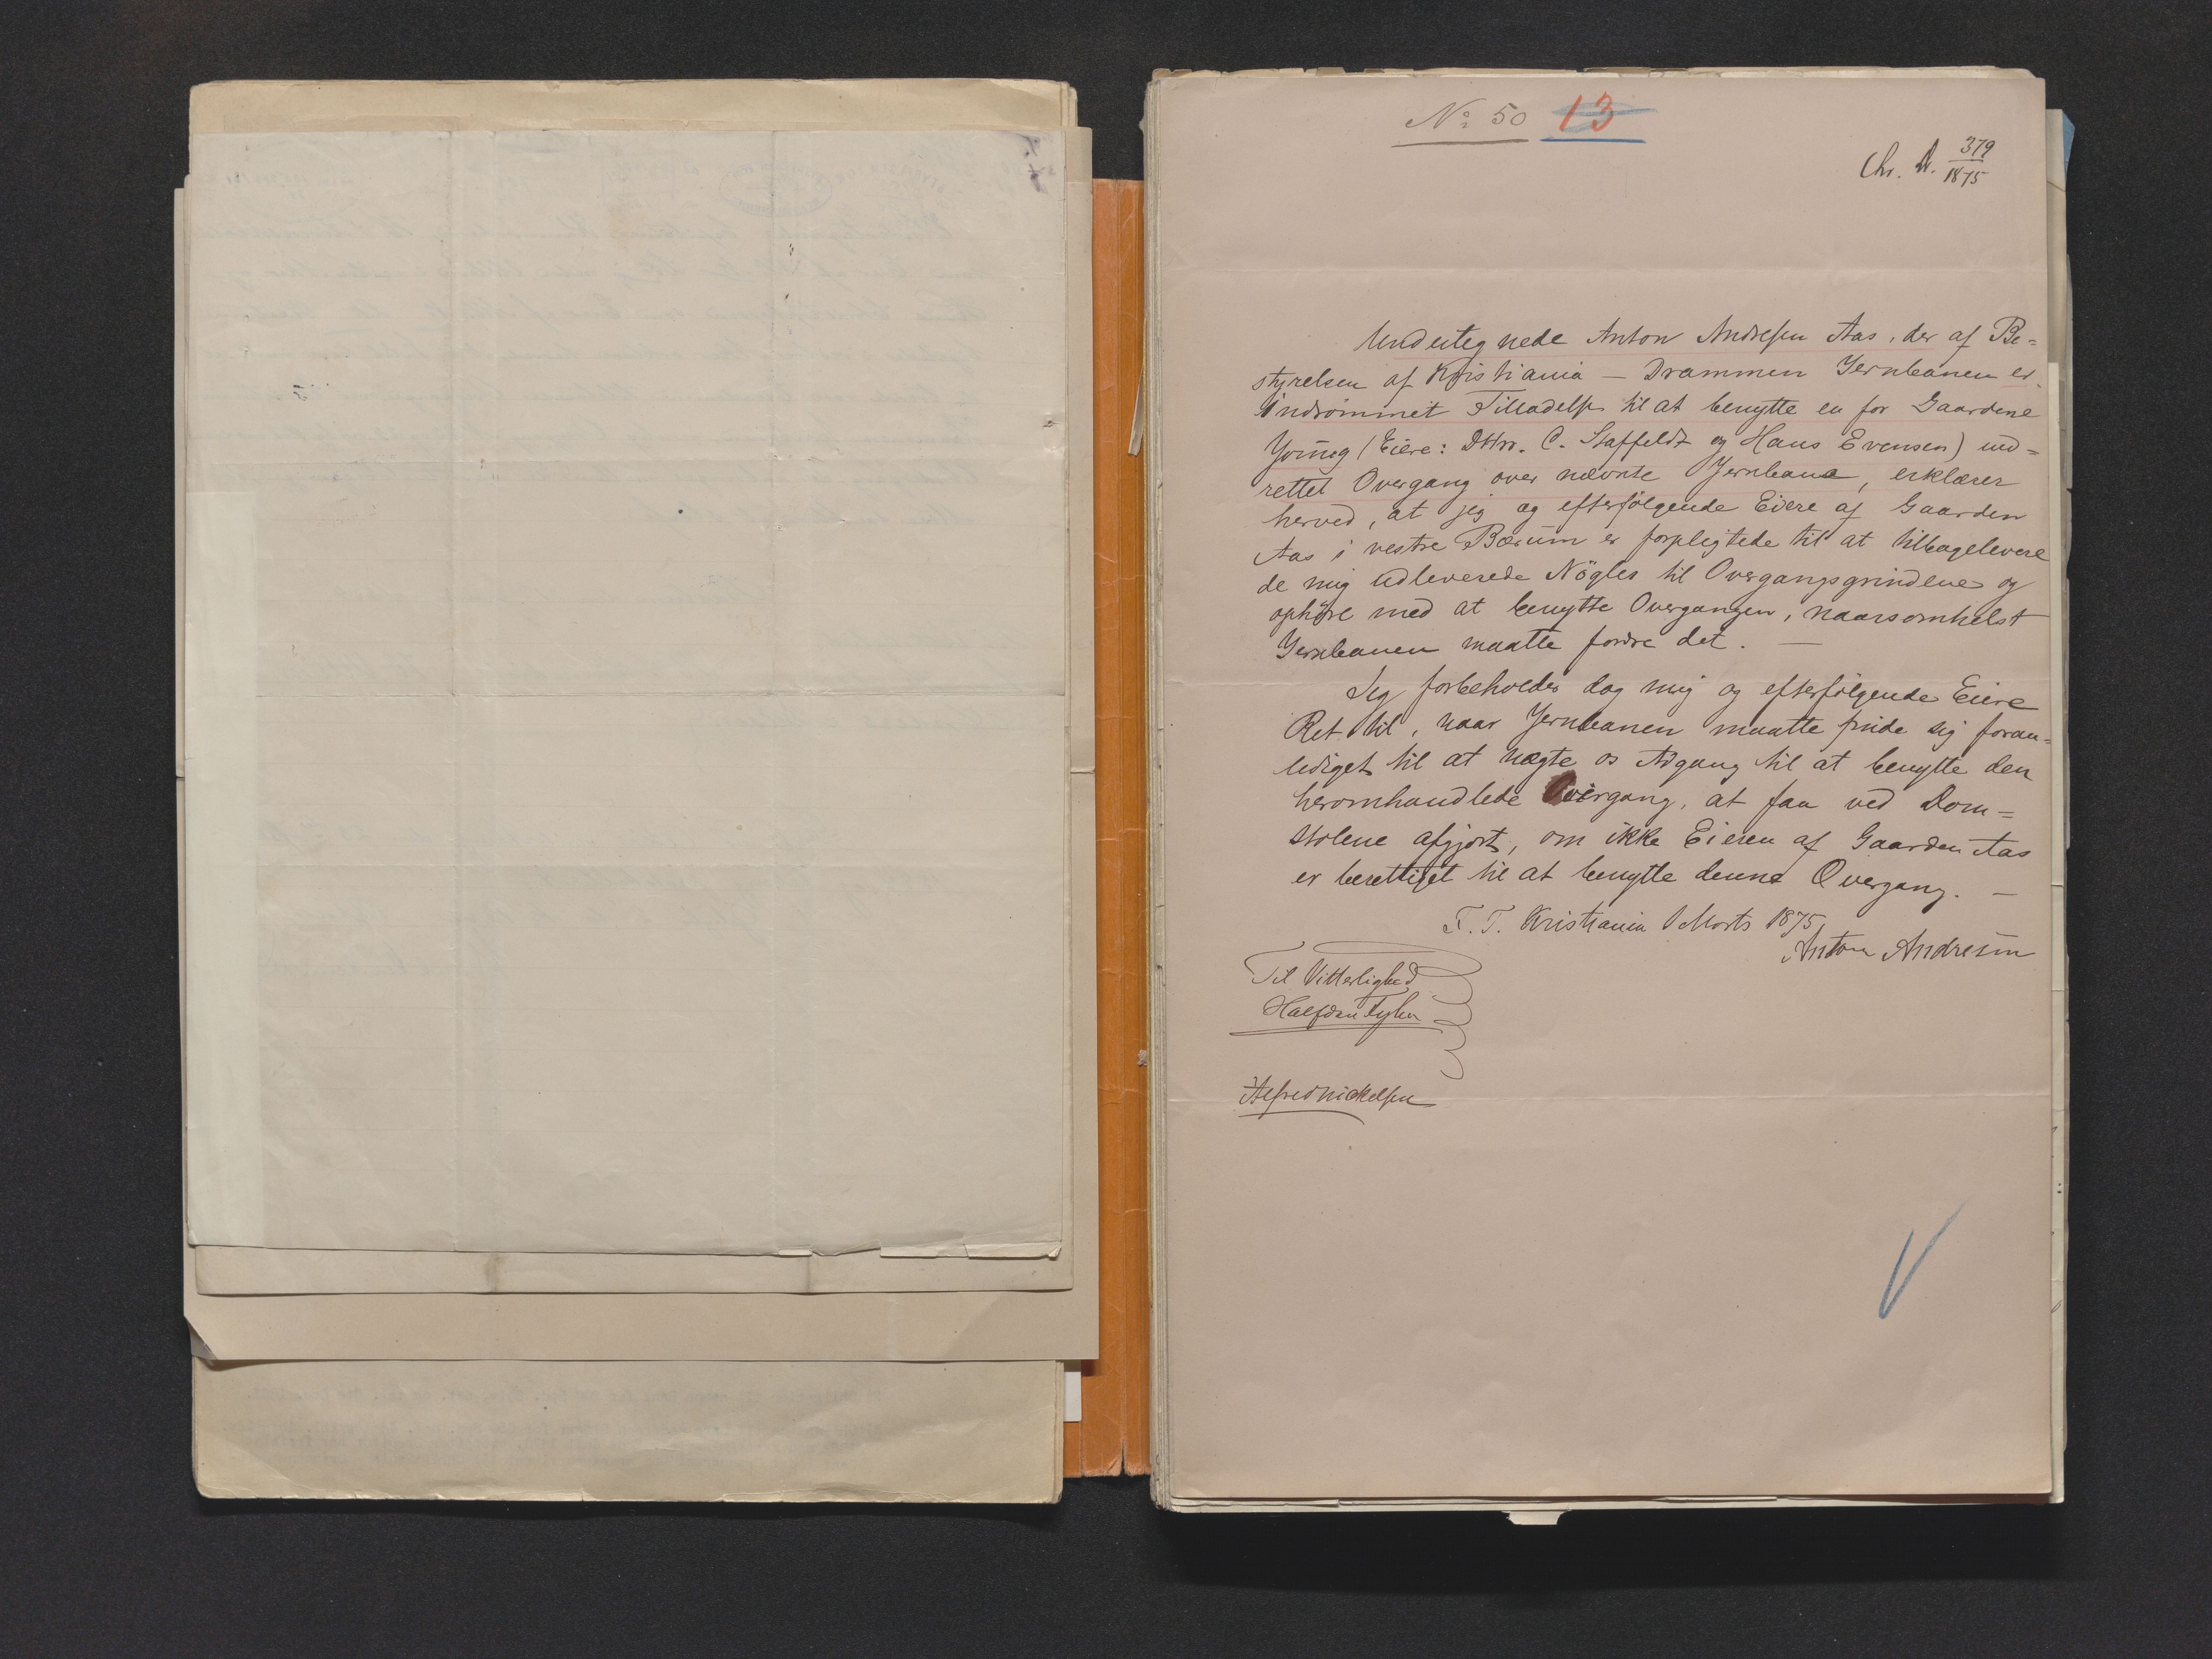 No. 50 13
Chr. D. 379
1875
Undertegnede Anton Andresen Aas, der af Be=
styrelsen af Kristiania — Drammen Jernbanen er
indrömmet Tilladelse til at benytte en for Gaardene
Yoûng (Eiere: DHrr. C. Staffeldt og Hans Evensen) ind=
rettet Overgang over nævnte Jernbane, erklærer
herved, at jeg og efterfölgende Eiere af Gaarden
Aas i vestre Bærum er forpligtede til at tilbagelevere
de mig udleverede Nögler til Overgangsgrindene og
ophöre med at benytte Overgangen, naarsomhelst
Jernbanen maatte fordre det. —
Jeg forbeholder dog mig og efterfölgende Eiere
Ret til, naar Jernbanen maatte finde sig foran=
lediget til at nægte os Adgang til at benytte den
heromhandlede Overgang, at faa ved Dom=
stolene afgjort, om ikke Eieren af Gaarden Aas
er berettiget til at benytte denne Overgang. —
T. T. Kristiania Marts 1875
Anton Andresen
Til Vitterlighed
Halfdan
Alfred Mickelsen